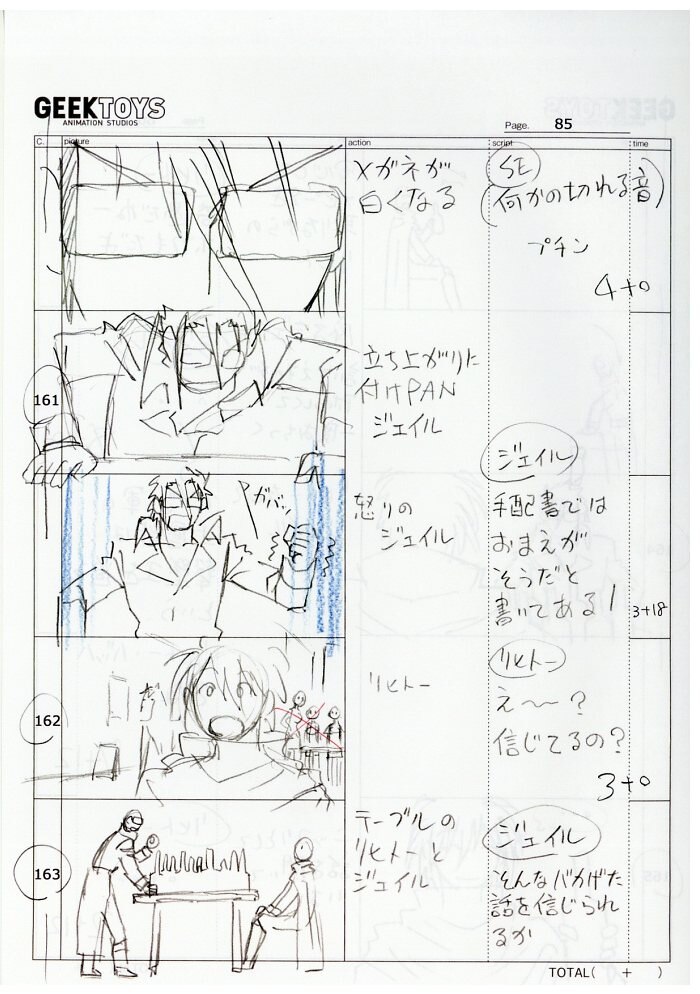 GEEKTOYS
ANIMATION STUDIOS
Page. 85
C. picture action script time
メガネが
白くなる
SE
(何かの切れる音)
プチン
4+0
161
立ち上がりに
付けPAN
ジェイル
ガバッ
怒りの
ジェイル
ジェイル
手配書では
おまえが
そうだと
書いてある!
3+18
162
リヒトー
リヒトー
え〜?
信じてるの?
3+0
163
テーブルの
リヒトーと
ジェイル
ジェイル
そんなバカげた
話を信じられ
るか
TOTAL( + )